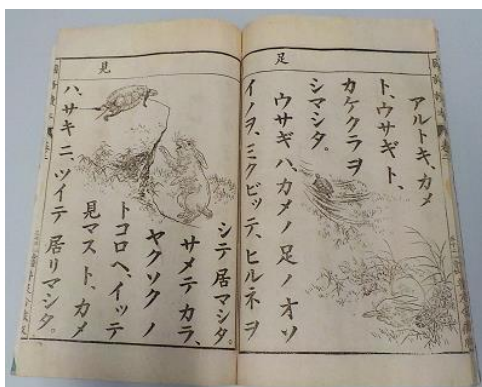 足
アルトキ、カメ
ト、ウサギト、
カケクラヲ
シマシタ。
ウサギハ、カメノ足ノオソ
イノヲ、ミクビッテ、ヒルネヲ
見
シテ居マシタ。
サメテカラ、
ヤクソクノ
トコロヘ、イッテ
見マスト、カメ
ハ、サキニ、ツイテ居リマシタ。